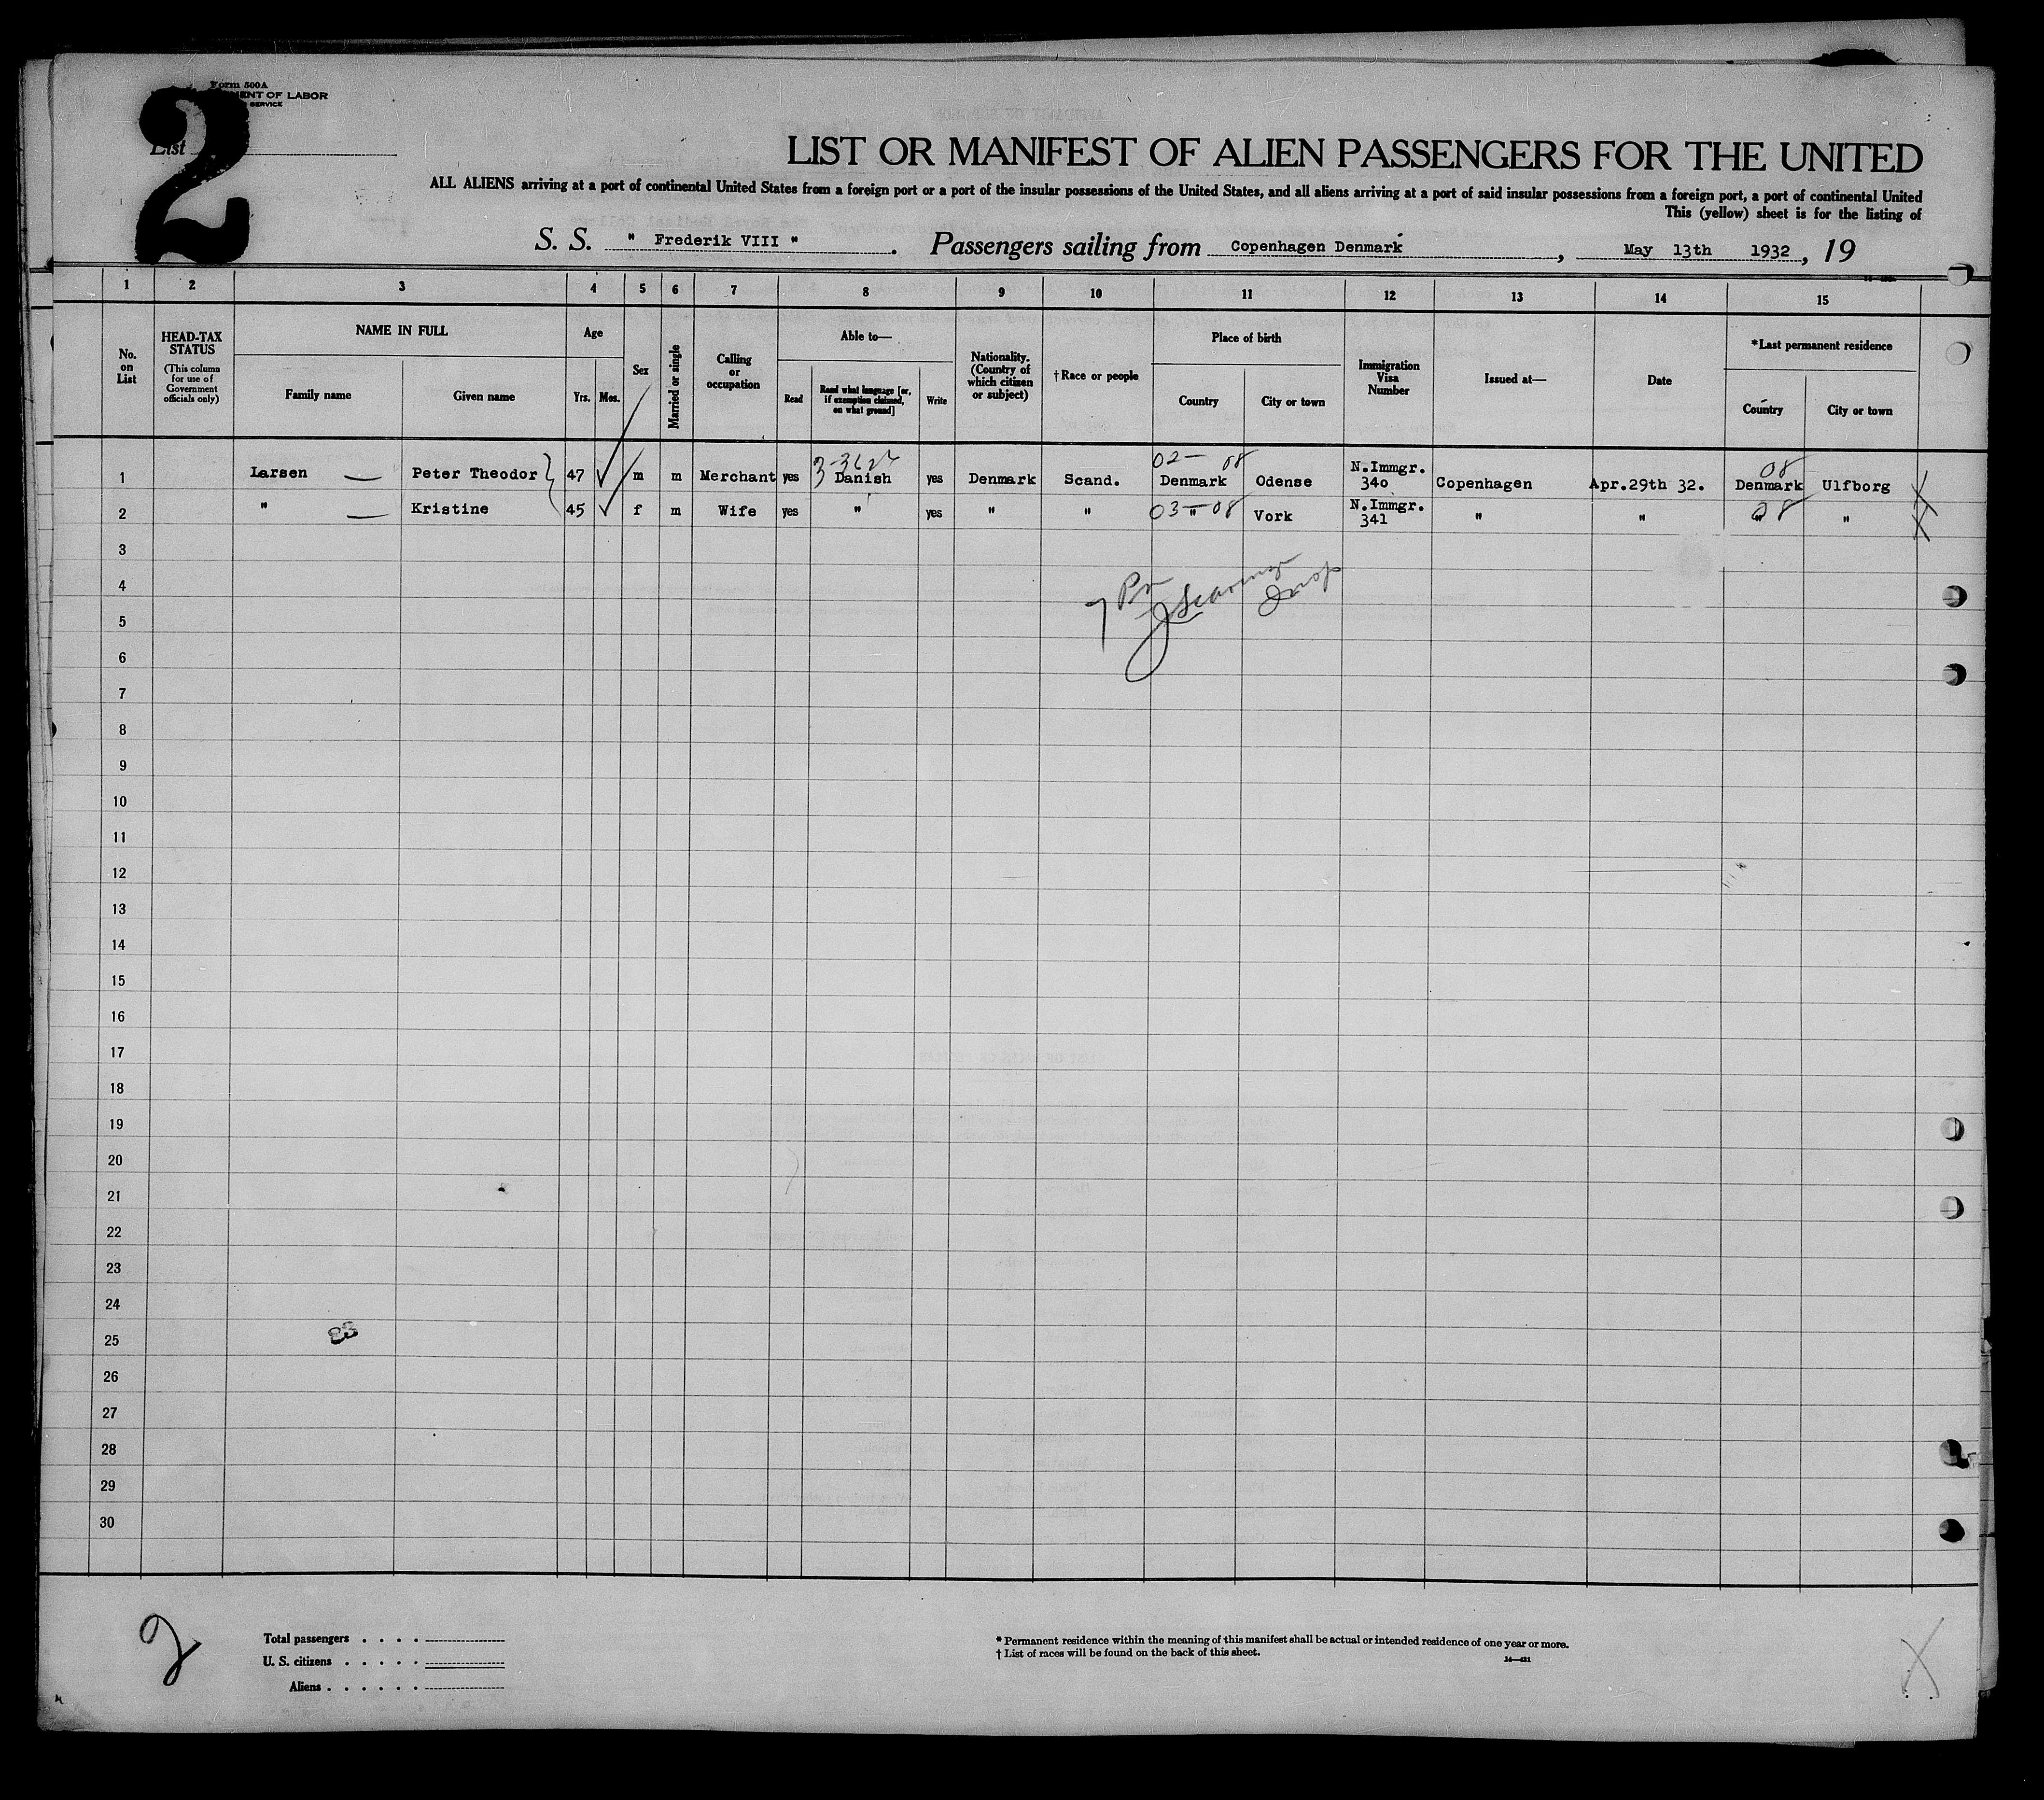 Form 500A
MENT OF LABOR
SERVICE
2
List
LIST OR MANIFEST OF ALIEN PASSENGERS FOR THE UNITED
ALL ALIENS arriving at a port of continental United States from a foreign port or a port of the insular possessions of the United States, and all aliens arriving at a port of said insular possessions from a foreign port, a port of continental United
This (yellow) sheet is for the listing of
S. S. " Frederik VIII " . Passengers sailing from Copenhagen Denmark , May 13th 1932 , 19
1 2 3 4 5 6 7 8 9 10 11 12 13 14 15
No. on List
HEAD-TAX STATUS
(This column for use of Government officials only)
NAME IN FULL
Family name
Given name
Age
Yrs.
Mos.
Sex
Married or single
Calling or occupation
Able to—
Read
Read what language [or, if exemption claimed, on what ground]
Write
Nationality. (Country of which citizen or subject)
†Race or people
Place of birth
Country
City or town
Immigration Visa Number
Issued at—
Date
*Last permanent residence
Country
City or town
02— 08 08
1 Larsen — Peter Theodor 47 ✓ m m Merchant yes Danish yes Denmark Scand. Denmark Odense N.Immgr. 340 Copenhagen Apr.29th 32. Denmark Ulfborg X
2 " — Kristine 45 ✓ f m Wife yes " yes " " 03 " 08 Vork N.Immgr. 341 " " 08 " " X
3
4
5
6
7
8
9
10
11
12
13
14
15
16
17
18
19
20
21
22
23
24
25
26
27
28
29
30
2
Total passengers . . . .
U. S. citizens . . . . .
Aliens . . . . . .
* Permanent residence within the meaning of this manifest shall be actual or intended residence of one year or more.
† List of races will be found on the back of this sheet.
14—421
X